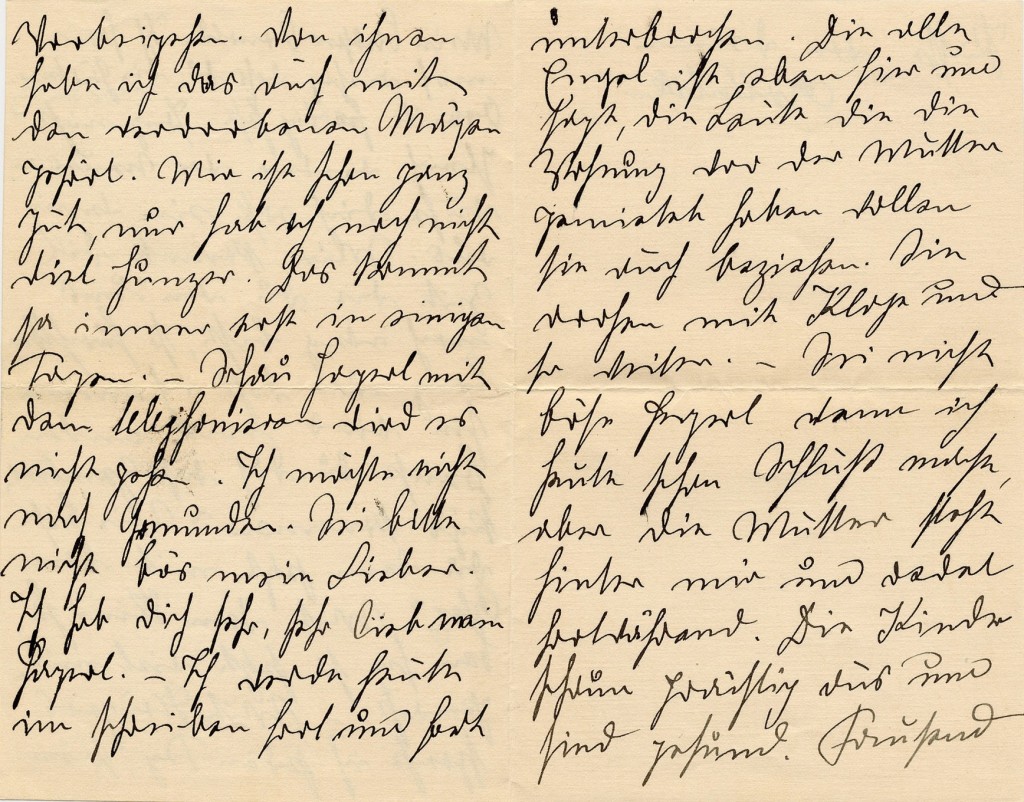 Vorbeigehen. Von ihnen
habe ich das auch mit
dem verdorbenen Magen
gehört. Mir ist schon ganz
gut, nur hab ich noch nicht
viel Hunger. Das kommt
ja immer erst in einigen
Tagen. – Schau Hagerl mit
dem telephonieren wird es
nicht gehen. Ich möchte nicht
nach Gmunden. Sei bitte
nicht bös mein Lieber.
Ich hab dich sehr, sehr lieb mein
Hagerl. – Ich werde heute
im schreiben fort und fort
unterbrochen. Die alte
Engel ist eben hier und
sagt, die Leute die die
Wohnung vor der Mutter
gemietet haben wollen
sie auch beziehen. Sie
drohen mit Klage und
so weiter. – Sei nicht
böse Hagerl wenn ich
heute schon Schluß mache,
aber die Mutter steht
hinter mir und redet
fortwährend. Die Kinder
schaun prächtig aus und
sind gesund. Tausend